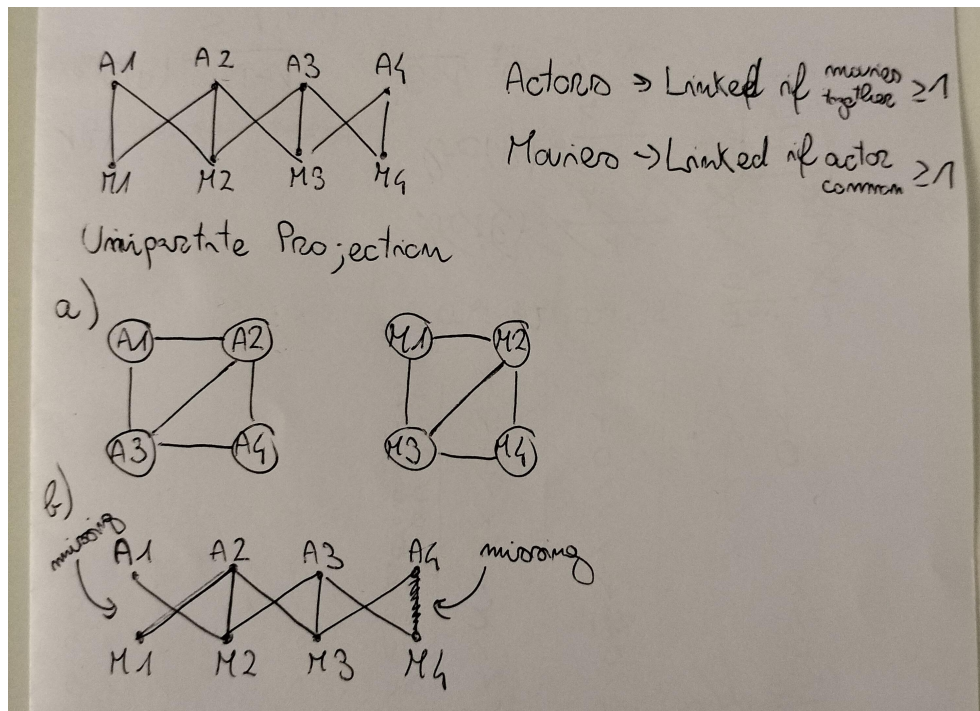 A1 A2 A3 A4
M1 M2 M3 M4
Actors → Linked if movies together ≥1
Movies → Linked if actor common ≥1
Unipartate Projection
a)
A1 A2
A3 A4
M1 M2
M3 M4
b)
missing
A1 A2 A3 A4
missing
M1 M2 M3 M4